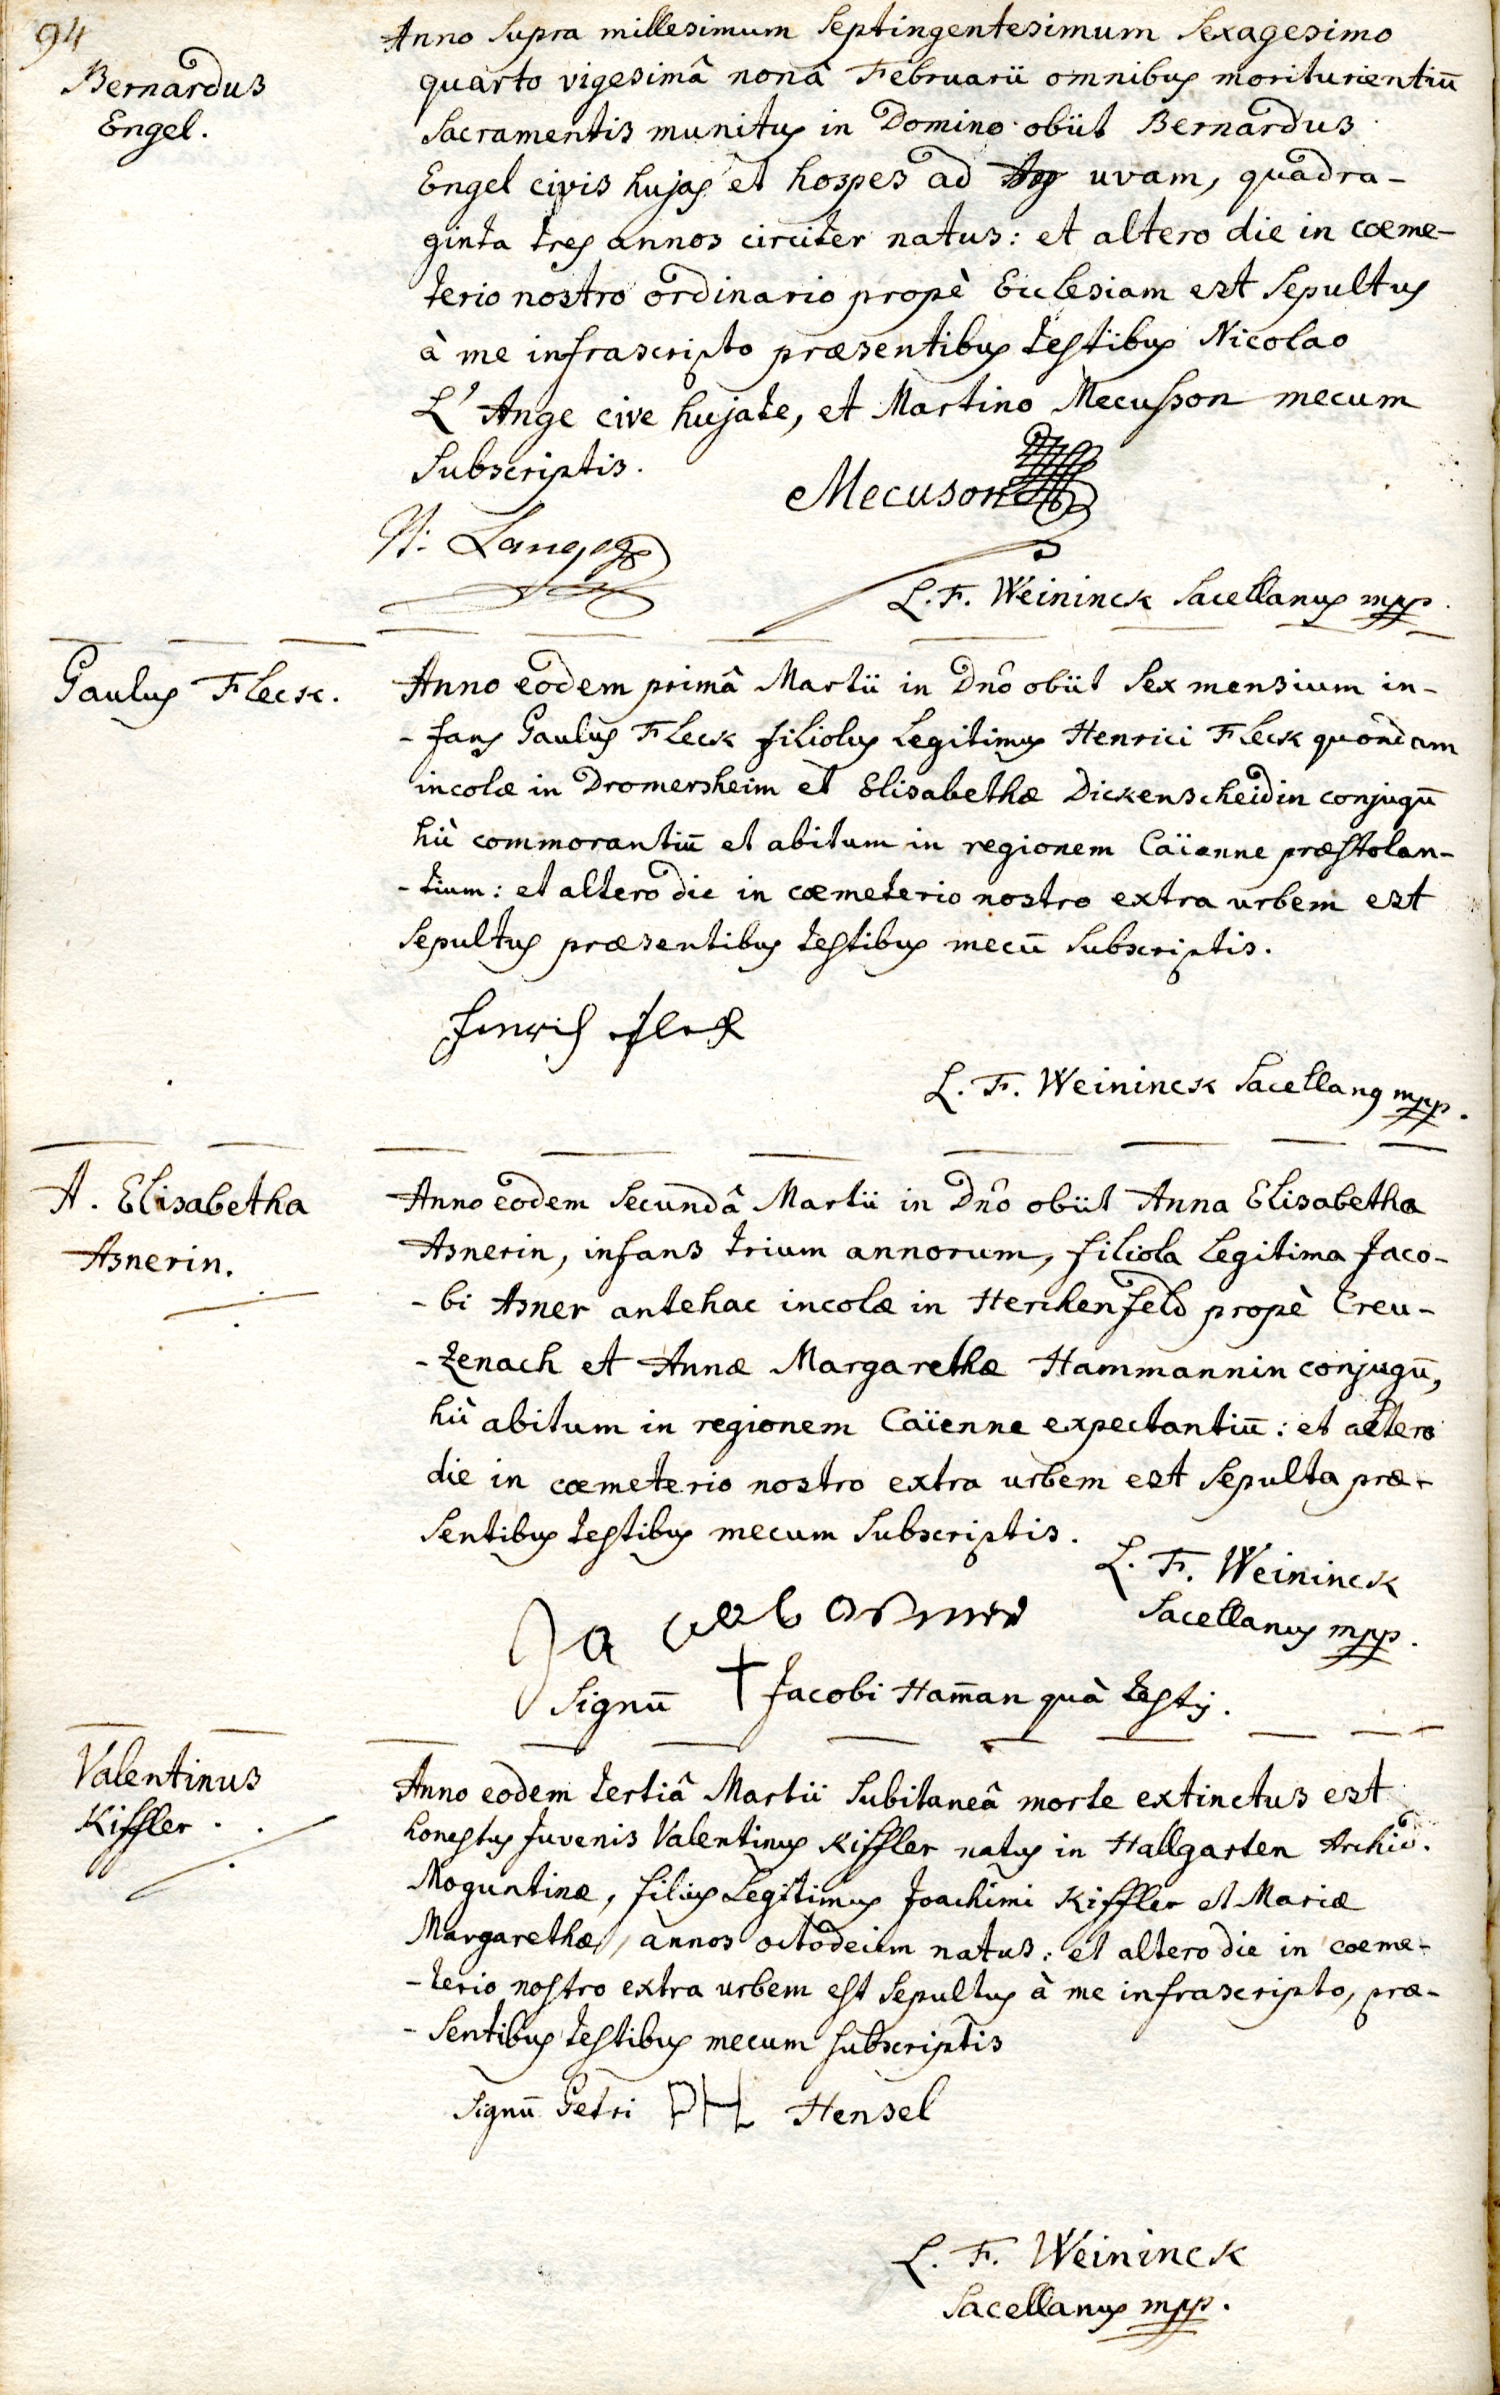 94
Bernardus
Engel.
Anno supra millesimum septingentesimum sexagesimo
quarto vigesimâ nonâ Februarii omnibus moriturientiū
sacramentis munitus in Domino obiit Bernardus
Engel civis hujas et hospes ad uvam, quadra-
ginta tres annos circiter natus: et altero die in cœme-
terio nostro ordinario propè Ecclesiam est sepultus
à me infrascripto præsentibus testibus Nicolao
L'Ange cive hujate, et Martino Mecusson mecum
subscriptis.
Mecuson
N: Lange
L. F. Weininck sacellanus mpp.
Paulus Fleck.
Anno eodem primâ Martii in Dnô obiit sex mensium in-
-fans Paulus Fleck filiolus legitimus Henrici Fleck quondam
incolæ in Dromersheim et Elisabethæ Dickenscheidin conjugū
hìc commorantiū et abitum in regionem Caïenne præstolan-
-tium: et altero die in cœmeterio nostro extra urbem est
sepultus præsentibus testibus mecū subscriptis.
Henrich fleck
L. F. Weininck sacellanus mpp.
A. Elisabetha
Asnerin.
Anno eodem secundâ Martii in Dnô obiit Anna Elisabetha
Asnerin, infans trium annorum, filiola legitima Jaco-
-bi Asner antehac incolæ in Herchenfeld propè Creu-
-zenach et Annæ Margarethæ Hammannin conjugū,
hìc abitum in regionem Caïenne expectantiū: et altero
die in cœmeterio nostro extra urbem est sepulta præ-
sentibus testibus mecum subscriptis.
L. F. Weininck
sacellanus mpp.
Ja cob asner
signū + Jacobi Ham̄an quà testis.
Valentinus
Kiffler.
Anno eodem tertiâ Martii subitaneâ morte extinctus est
honestus juvenis Valentinus Kiffler natus in Hallgarten Archid.
Moguntinæ, filius legitimus Joachimi Kiffler et Mariæ
Margarethæ, annos octodecim natus: et altero die in cœme-
-terio nostro extra urbem est sepultus à me infrascripto, præ-
-sentibus testibus mecum subscriptis
signū Petri PH Hensel
L. F. Weininck
sacellanus mpp.